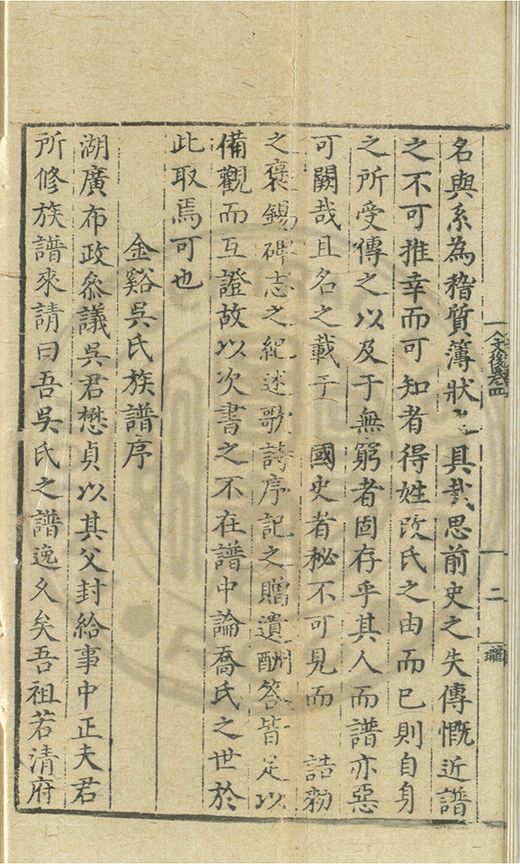 文後卷四
二
名與系為稽質簿狀之具哉思前史之失傳慨近譜
之不可推幸而可知者得姓改氏之由而已則自身
之所受傳之以及于無窮者固存乎其人而譜亦惡
可闕哉且名之載于 國史者秘不可見而 誥勑
之褒錫碑志之紀述歌詩序記之贈遺酬答皆足以
備觀而互證故以次書之不在譜中論喬氏之世於
此取焉可也
金谿吳氏族譜序
湖廣布政叅議吳君懋貞以其父封給事中正夫君
所修族譜來請曰吾吳氏之譜逸久矣吾祖若清府